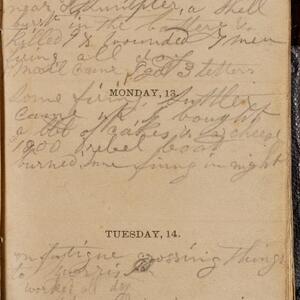 near Ft Sumpter, a shell
burst in the battery &
killed 1 & wounded 7 men
firing all
mail came, got 3 letters
MONDAY, 13.
Some firing, Suttler
came up & bought
a lot of cakes &
1900 rebel boat
burned, some firing in night
TUESDAY, 14.
on fatigue crossing things
to Morris
worked all day